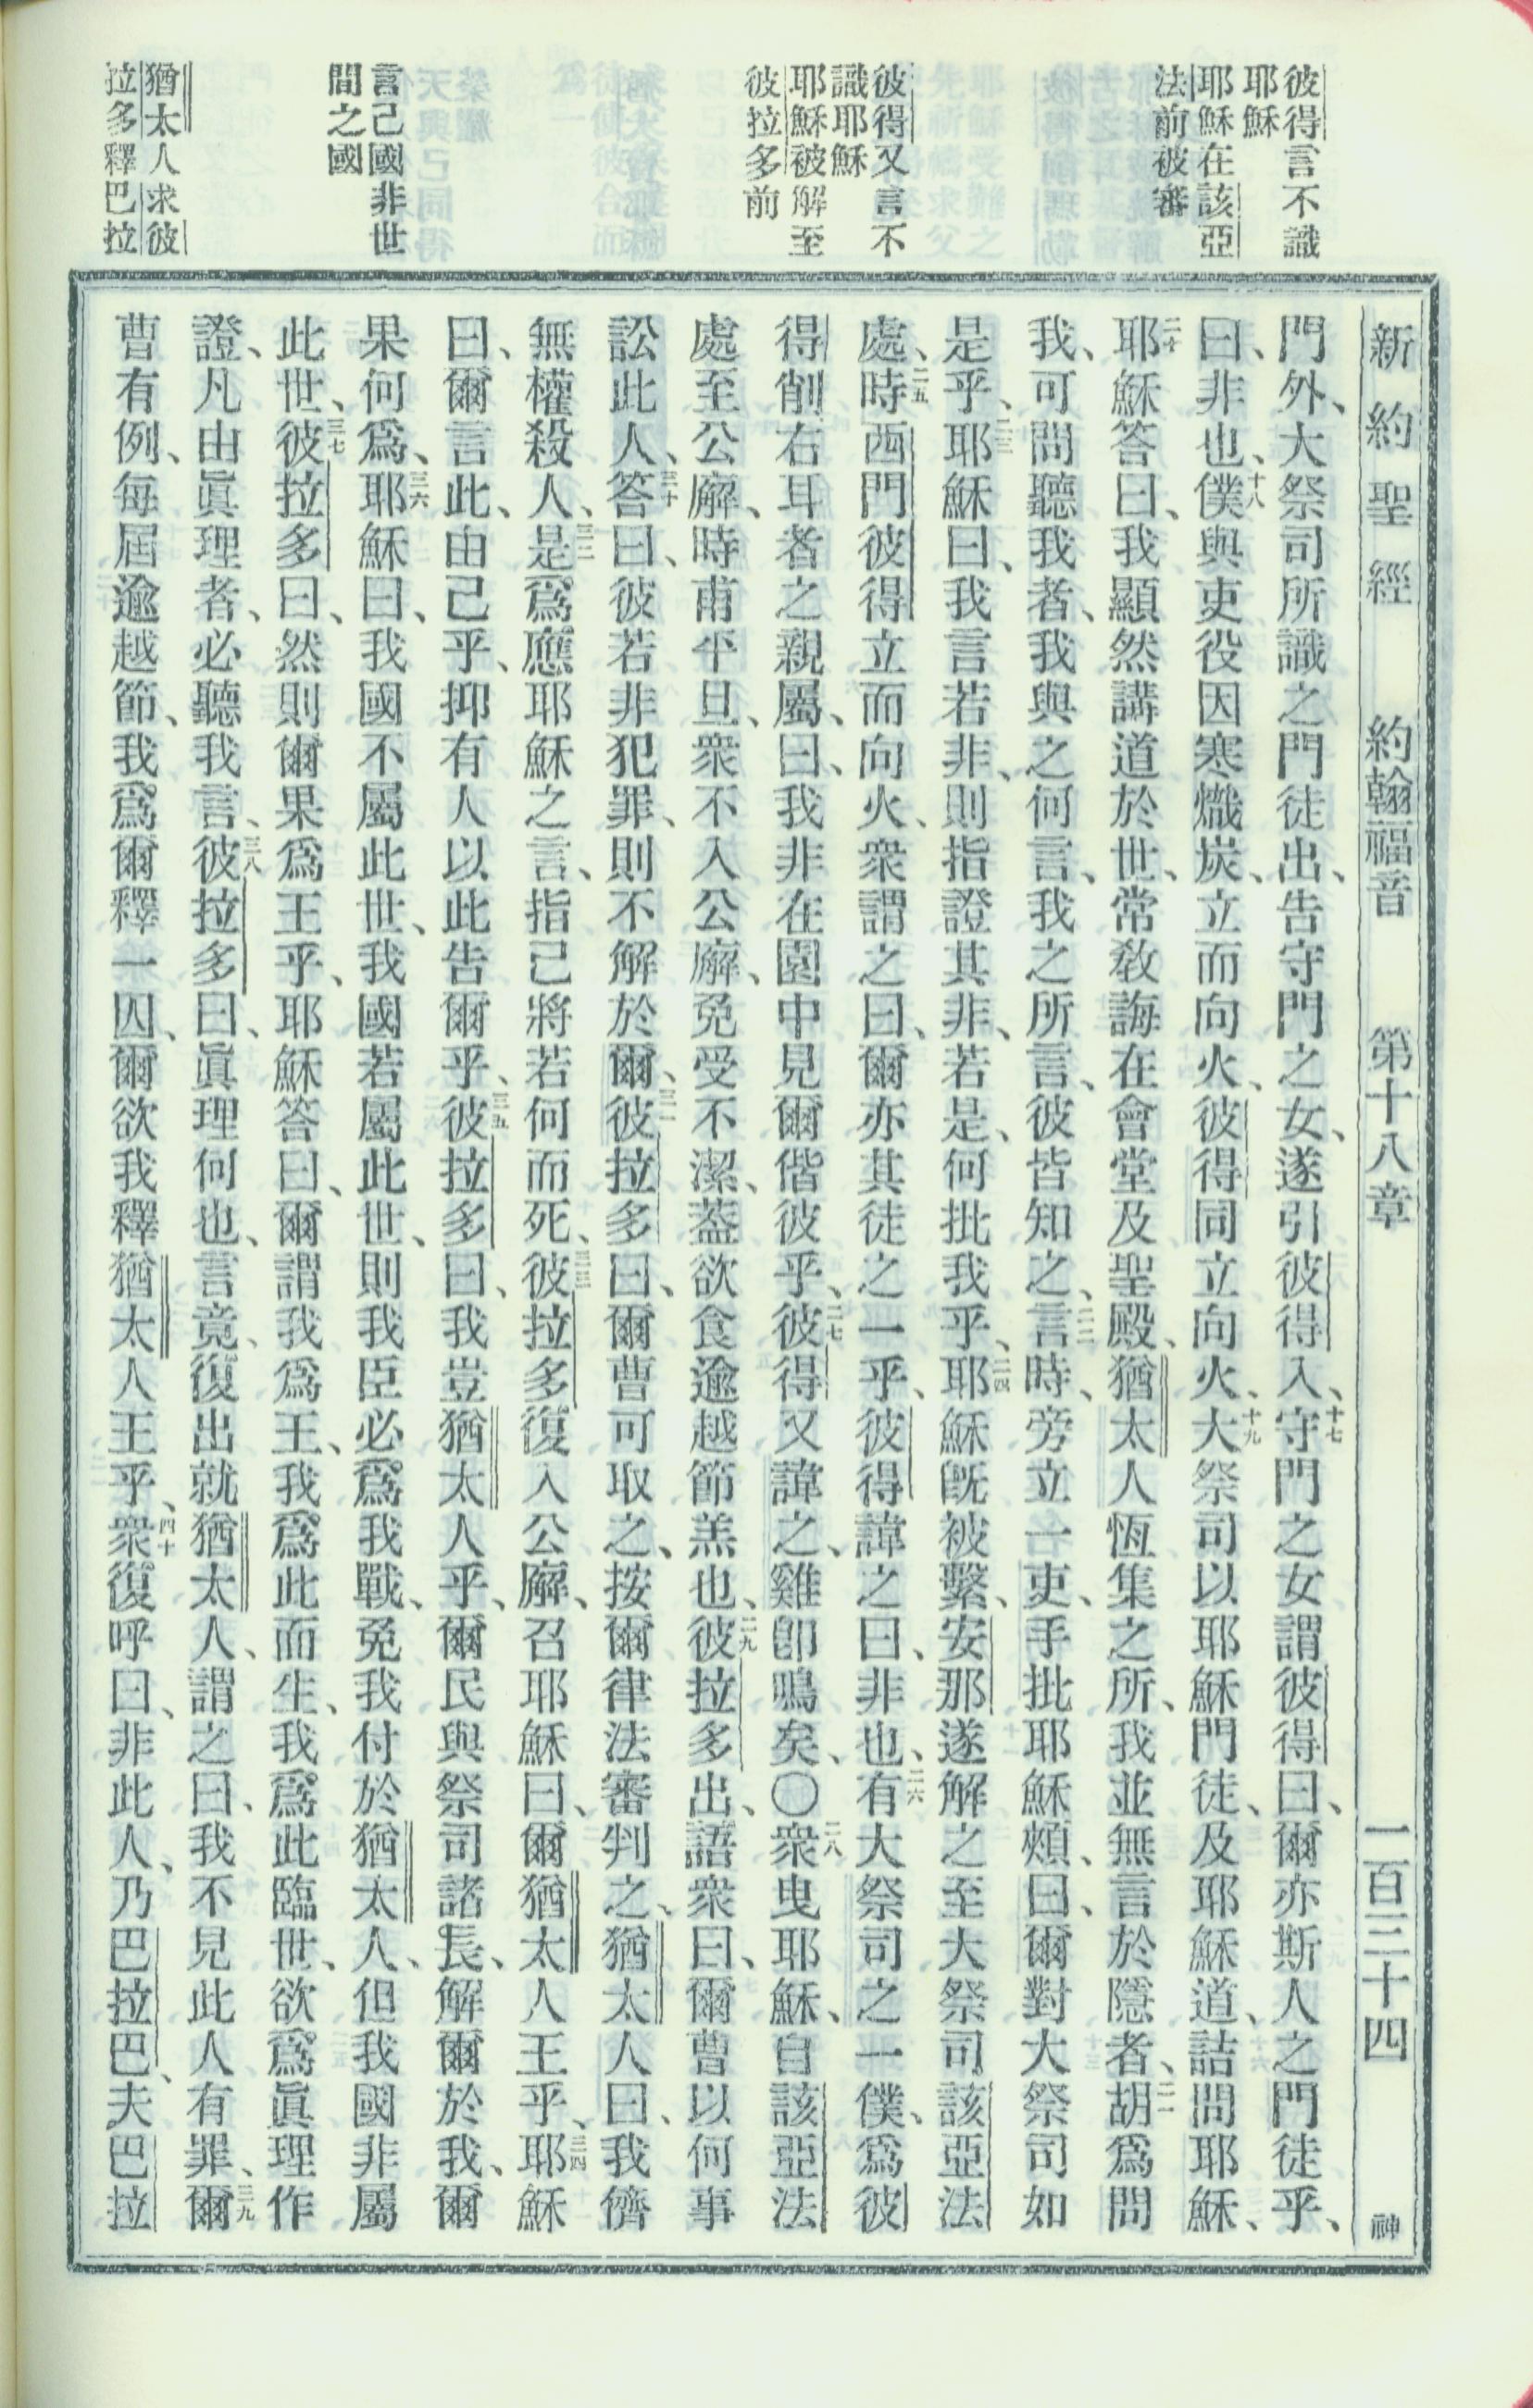 彼得言不識
耶穌
耶穌在該亞
法前被審
彼得又言不
識耶穌
耶穌被解至
彼拉多前
言己國非世
間之國
猶太人求彼
拉多釋巴拉
新約聖經 約翰福音 第十八章 一百三十四 神
門外、大祭司所識之門徒出、告守門之女、遂引彼得入、十七守門之女謂彼得曰、爾亦斯人之門徒乎、
曰、非也、十八僕與吏役因寒熾炭、立而向火、彼得同立向火、十九大祭司以耶穌門徒、及耶穌道、詰問耶穌、
二十耶穌答曰、我顯然講道於世、常敎誨在會堂及聖殿、猶太人恆集之所、我並無言於隱者、二一胡爲問
我、可問聽我者、我與之何言、我之所言、彼皆知之、二二言時、旁立一吏、手批耶穌頰、曰、爾對大祭司如
是乎、二三耶穌曰、我言若非、則指證其非、若是、何批我乎、二四耶穌旣被繫、安那遂解之至大祭司該亞法
處、二五時西門彼得立而向火、衆謂之曰、爾亦其徒之一乎、彼得諱之曰、非也、二六有大祭司之一僕、爲彼
得削右耳者之親屬、曰、我非在園中見爾偕彼乎、二七彼得又諱之、雞卽鳴矣、〇二八衆曳耶穌、自該亞法
處至公廨、時甫平旦、衆不入公廨、免受不潔、葢欲食逾越節羔也、二九彼拉多出、語衆曰、爾曹以何事
訟此人、三十答曰、彼若非犯罪、則不解於爾、三一彼拉多曰、爾曹可取之、按爾律法審判之、猶太人曰、我儕
無權殺人、三二是爲應耶穌之言、指己將若何而死、三三彼拉多復入公廨、召耶穌曰、爾猶太人王乎、三四耶穌
曰、爾言此、由己乎、抑有人以此告爾乎、三五彼拉多曰、我豈猶太人乎、爾民與祭司諸長、解爾於我、爾
果何爲、三六耶穌曰、我國不屬此世、我國若屬此世、則我臣必爲我戰、免我付於猶太人、但我國非屬
此世、三七彼拉多曰、然則爾果爲王乎、耶穌答曰、爾謂我爲王、我爲此而生、我爲此臨世、欲爲眞理作
證、凡由眞理者、必聽我言、三八彼拉多曰、眞理何也、言竟、復出就猶太人、謂之曰、我不見此人有罪、三九爾
曹有例、每屆逾越節、我爲爾釋一囚、爾欲我釋猶太人王乎、四十衆復呼曰、非此人、乃巴拉巴、夫巴拉